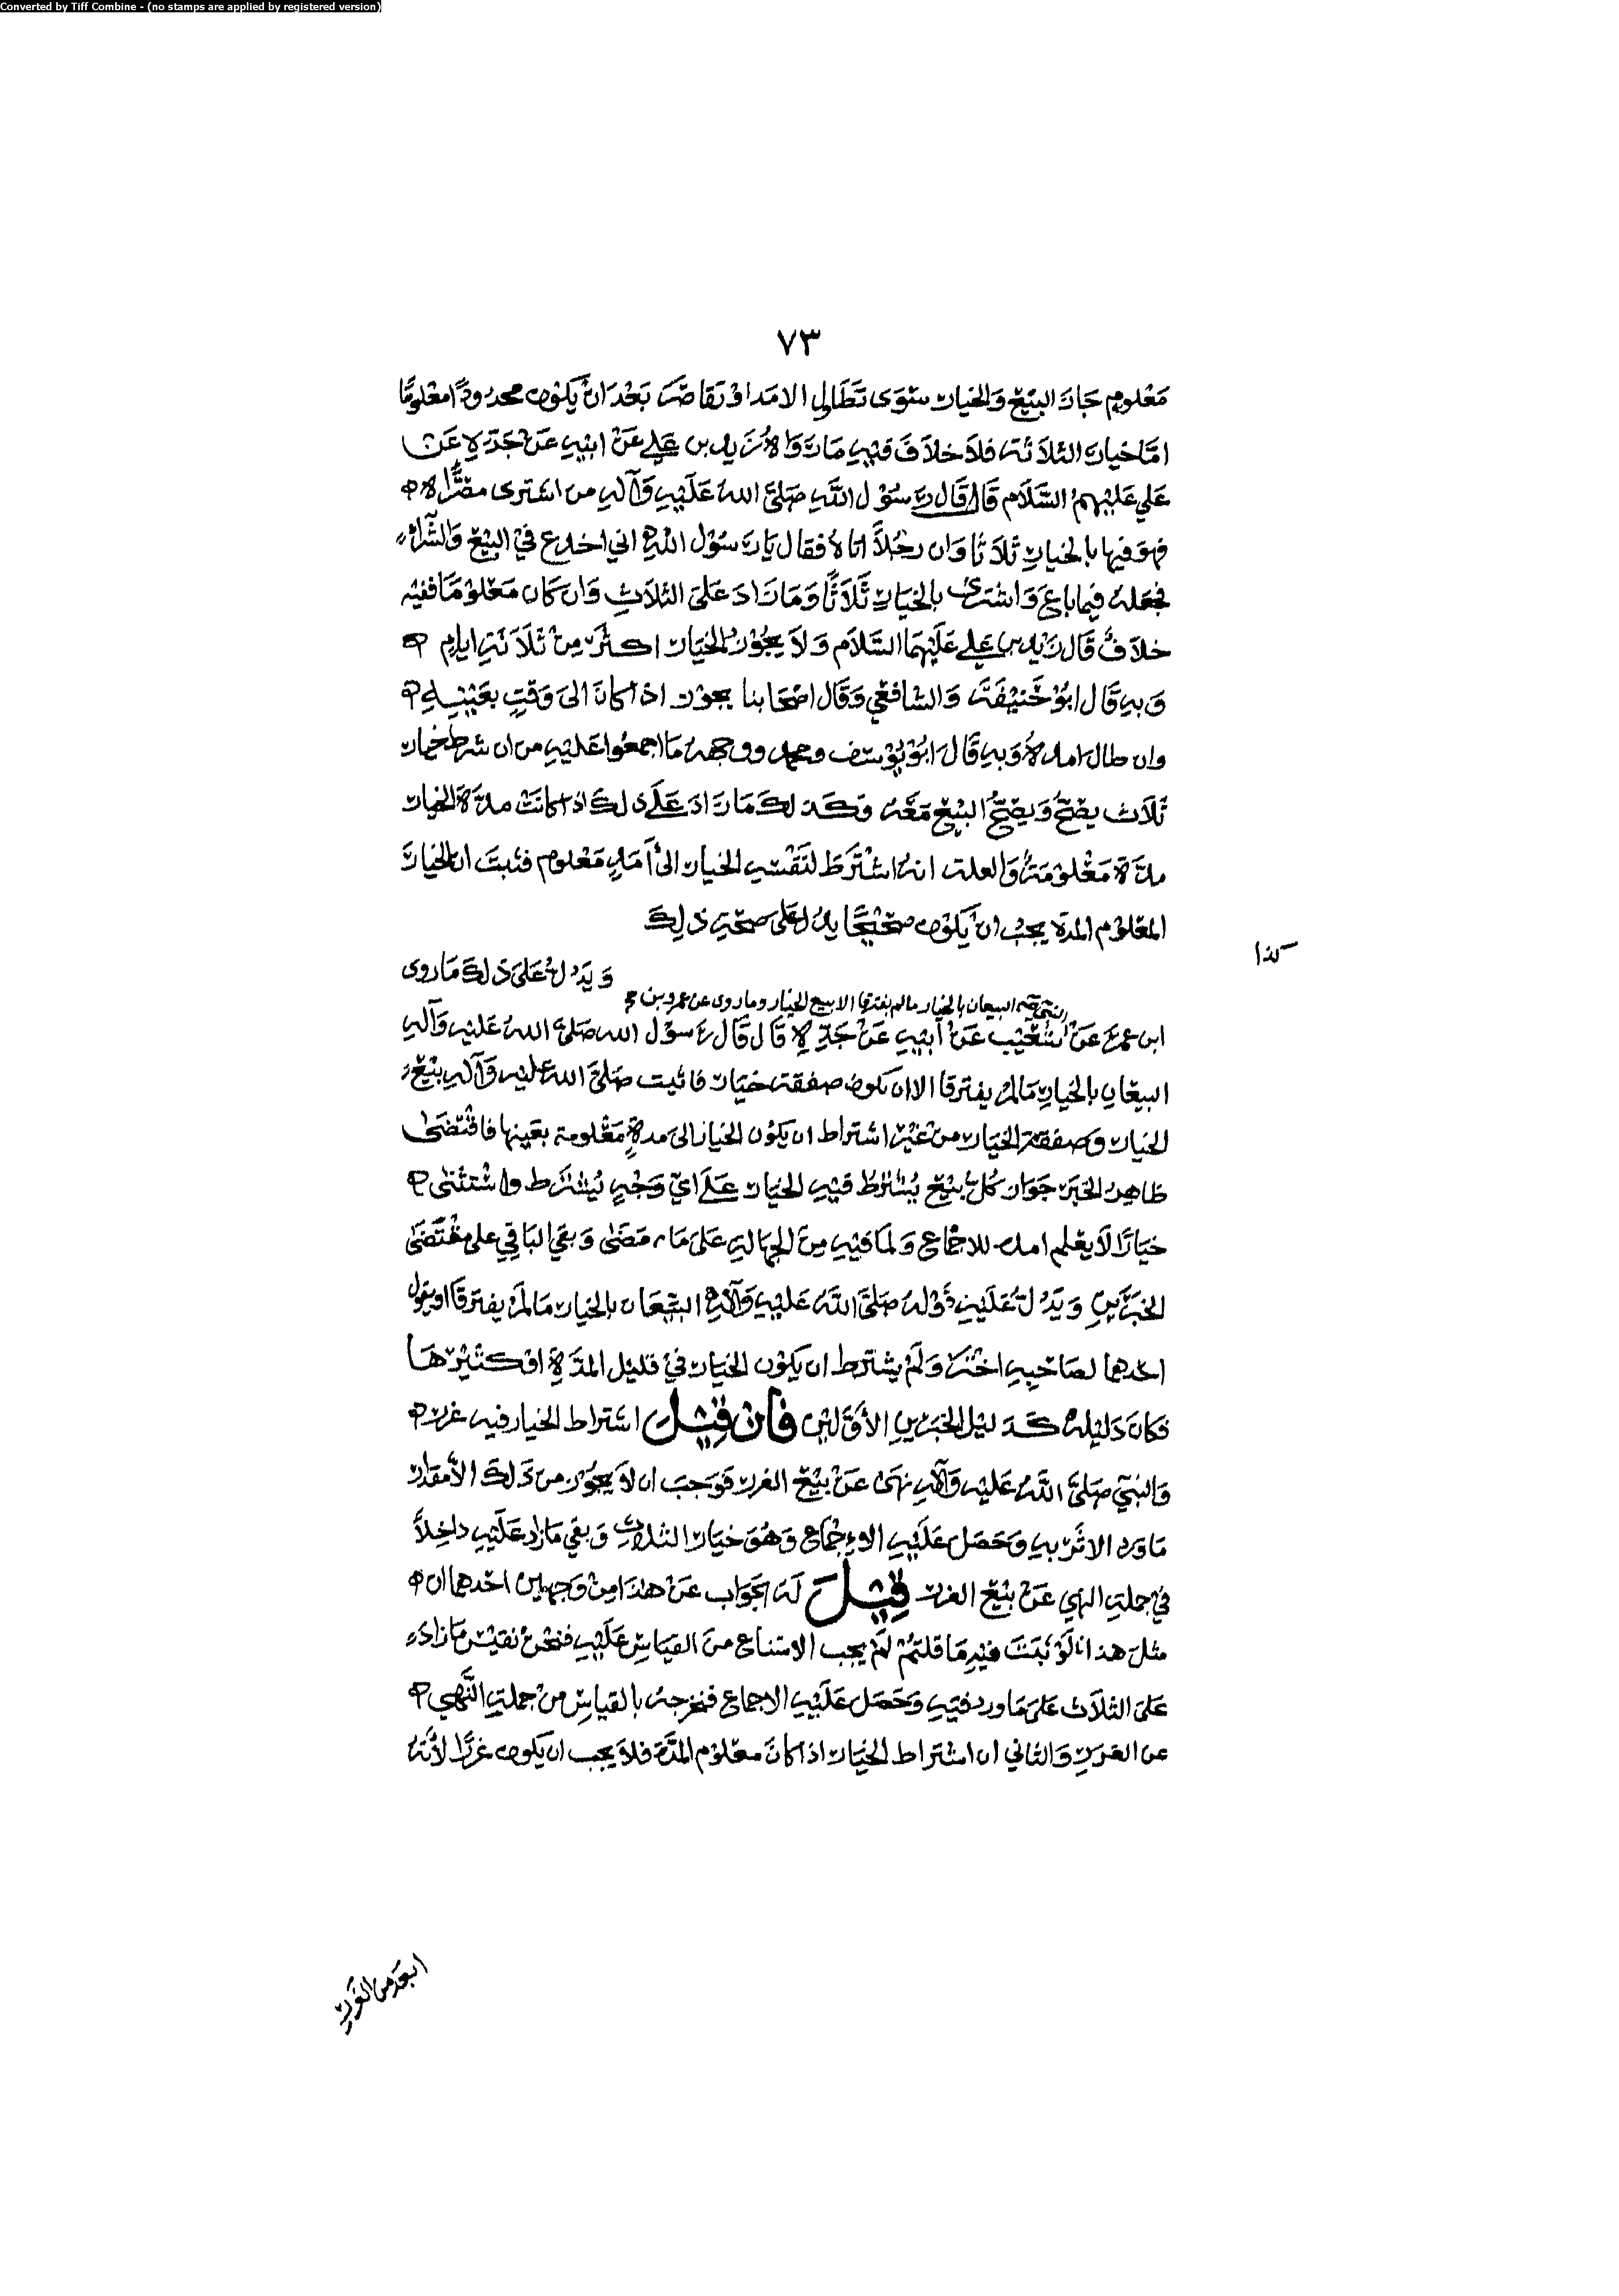 Converted by Tiff Combine - (no stamps are applied by registered version)
٧٣
مَعْلومٍ جَازَ البَيْعُ وَالخيار سَوَى تَطَاول الامَد اوْ تقَاصَرَ بَعْدَ انْ يَكوْن محدودًا معْلومًا
امَّا خيار الثلاثة فلاَ خلاَفَ فيْهِ مَا رَوَاهُ زَيد بن عَلي عَنْ ابيْهِ عَنْ جَدّهِ عَنْ
عَلي عَليْهمُ السَّلاَم قَال قَال رَسُوْل اللَّهِ صَلَّى اللهُ عَلَيْهِ وَآلهِ من اشترى مصَرَّاه
فهوَ فيها بالخيارِ ثَلاَثًا وَان رجُلاً اتاهُ فقال يَا رَسُوْل اللهِ اني اخدع فيْ البَيْع وَالشّرَاء
فجعَلهُ فيما باعَ وَاشترَى بالخيَارِ ثَلاَثًا وَمَا زَادَ عَلىَ الثلاَثِ وَان كَان مَعْلوْمًا ففيْه
خلاَفٌ قَال زَيْد بن عَلي عَلَيْهمَا السَّلاَم وَلاَ يجُوْز الخيَار اكثَرَ مِنْ ثَلاَثَةِ ايام
وَبهِ قَال ابوْ حَنيْفَةَ وَالشافعي وَقَال اصْحَابنا يجوْز اذا كَانَ الىَ وَقتٍ بعَيْنِهِ
وان طال امدهُ وَبهِ قَال ابوْ يوْسَف ومحمد ووجههُ مَا اجمعُوا عَليْهِ من ان شرط خيار
ثَلاَث يصِحُّ وَيصِحُّ البَيْع مَعَهُ وَكَذلكَ مَا زَادَ عَلَى ذلكَ اذا كانَتْ مدةَ الخيار
مدَّةً مَعْلوْمَةً وَالعلة انهُ اشْترَطَ لنَفْسهِ الخيار الىْ أمَدٍ مَعْلوم فثبتَ ان الخيارَ
المعْلوْم المدة يجبُ انْ يَكوْن صَحيْحًا يدلُّ عَلى صحَّةِ ذلِكَ
كذا
وَيَدُلُّ عَلىَ ذلكَ مَا روى
البيعان بالخيار مالم يفترقا الا بيع الخيار وما روى عن عمرو بن
ابن عمرو عَنْ شعَيْب عَنْ أبيْهِ عَنْ جَدِّهِ قَال قَال رَسوْل الله صَلىَ اللهُ عَليْهِ وَآلهِ
البيعَانِ بالخيَارِ مَا لمْ يفترقا الا ان يكون صفقة خيَار فاثبت صَلىَ الله عليْه وَآلهِ بَيْعَ
الخيار وَصفقة الخيَار من غَيْر اشتراط ان يكوْن الخيار الى مدةٍ مَعْلومة بعَينها فاقتَضَى
ظاهِرُ الخبَر جَوَاز كُلُّ بَيْعٍ يُشترَطُ فيْهِ الخيَار عَلَى ايِّ وَجْهٍ يُشترَط واسْتثنَى
خيَارًا لاَ يعْلم امده للاجْماع وَلمَا فيْهِ منَ الجهَالةِ عَلىَ مَا مَضَى وَبقيَ البَاقي على مقْتَضَى
الخبَرَيْنِ وَيَدُلُّ عَلَيْهِ قَوْلهُ صَلىَّ اللَّهُ عَليْهِ وَآلهِ البيِّعَان بالخيار مَا لَمْ يفترقَا او يَقول
احدهما لصَاحبهِ اختَرْ وَلَمْ يشترط ان يكوْن الخيَار فيْ قليْل المدَّةِ اوْ كَثيْرهَا
فكانَ دَليْلهُ كَدَليْل الخبَريْنِ الأوَّلَيْن فَانْ قيْلَ اشتراط الخيار فيْه غرر
وَالنبيّ صَلىَّ اللَّهُ عَليْهِ وَآلهِ نهَى عَنْ بَيْع الغرر فَوَجَبَ ان لاَ يجوْز من ذَلكَ الاَّ مقدار
مَا ورد الاثَر بهِ وَحَصَل عَلَيْهِ الاِجْماع وَهُوَ خيَار الثلاث وَبقيَ مَا زاد عَلَيْهِ داخلاً
فيْ جملةِ النهي عَنْ بَيْعِ الغرر قِيْلَ لهُ الجَوَاب عَنْ هَذَا منْ وَجهيْن احَدهما ان
مثل هذا لَوْ ثبَتَ فيْهِ مَا قلتمْ لَمْ يجب الامتناع منَ القياسِ عَلَيْهِ فنَحْنُ نقيْس مَا زادَ
عَلىَ الثلاَث عَلىَ مَا ورد فيْهِ وَحَصَل عَلَيْهِ الاجماع فنخرجهُ بالقياسِ منْ جملةِ النَّهي
عن الغرَرِ وَالثاني ان اشتراط الخيَار اذا كانَ معْلوْم المدَّة فلاَ يجب ان يكون غررًا لأنَّهُ
ابعَد من الغَرَر